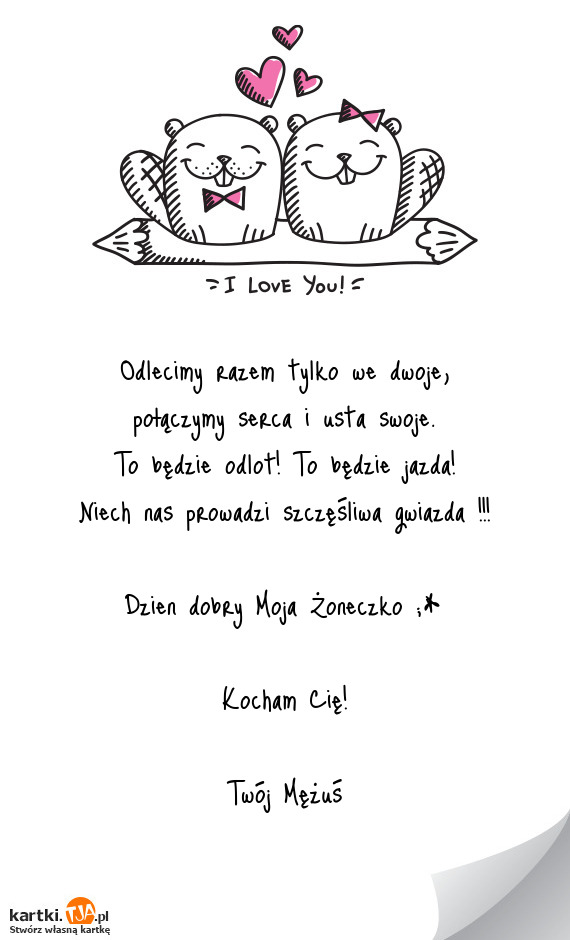 I LOVE YOU!
Odlecimy razem tylko we dwoje,
połączymy serca i usta swoje.
To będzie odlot! To będzie jazda!
Niech nas prowadzi szczęśliwa gwiazda !!!
Dzien dobry Moja Żoneczko ;*
Kocham Cię!
Twój Mężuś
kartki.TJA.pl
Stwórz własną kartkę